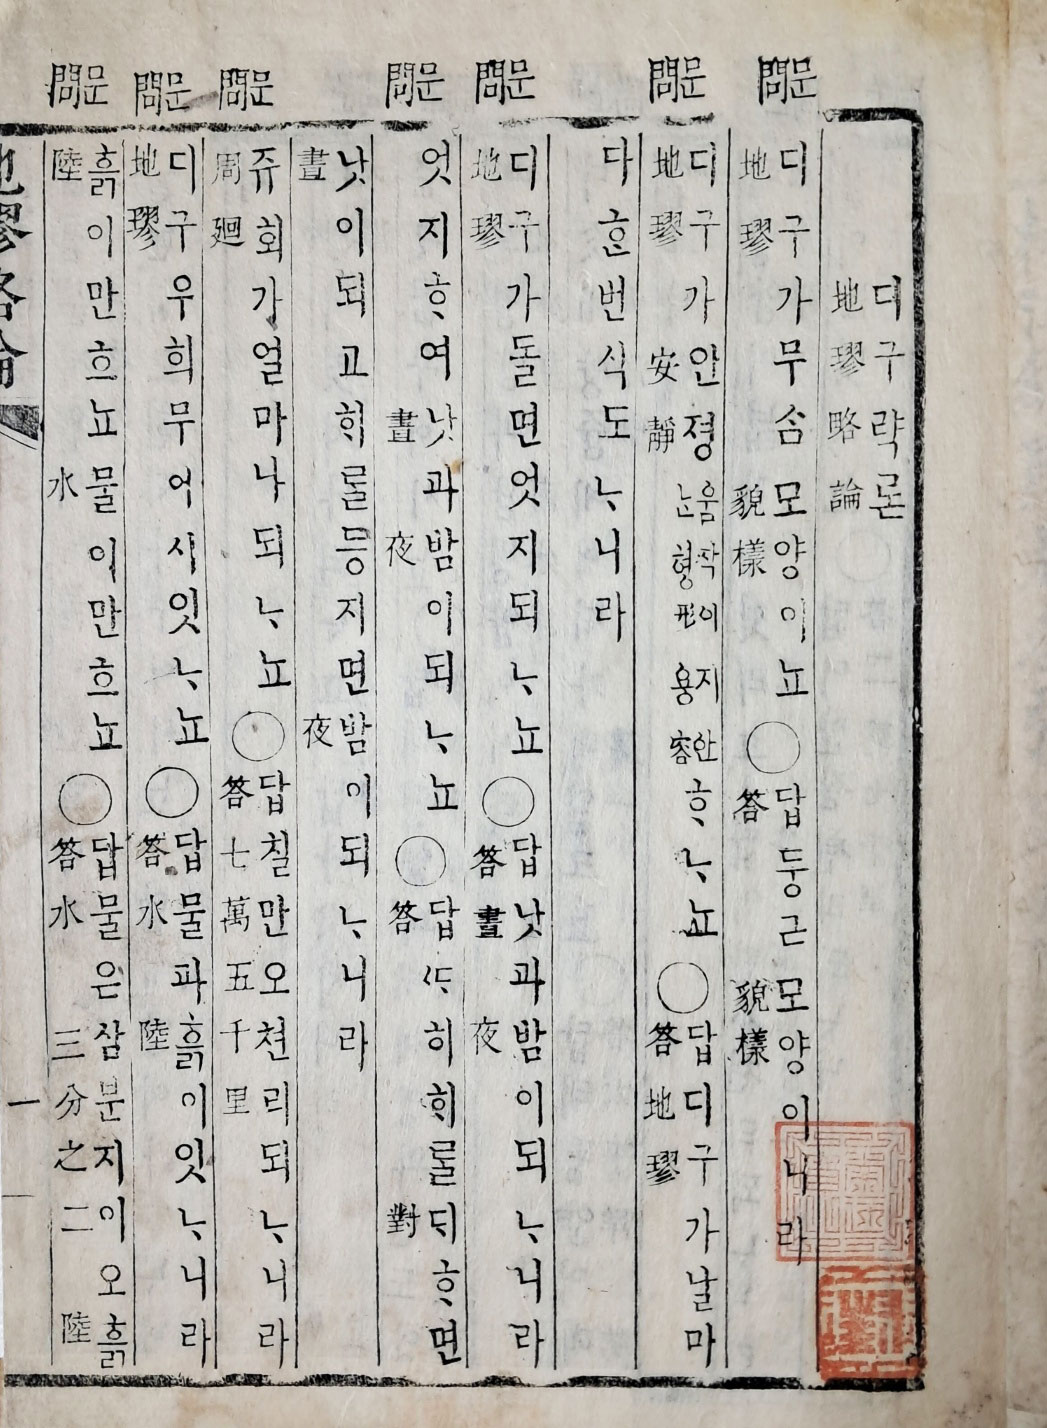 디구략론
地璆略論
問문
디구가무솜모양이뇨○답둥근모양이니라
地璆 貌樣 答 貌樣
問문
디구가안졍움작이지안ᄂᆞᆫ형形용容ᄒᆞᄂᆞ뇨○답디구가날마
地璆 安靜 答 地璆
다ᄒᆞᆫ번식도ᄂᆞ니라
問문
디구가돌면엇지되ᄂᆞ뇨○답낫과밤이되ᄂᆞ니라
地璆 答 晝 夜
問문
엇지ᄒᆞ여낫과밤이되ᄂᆞ뇨○답ᄯᆞ히ᄒᆡ롤ᄃᆡᄒᆞ면
晝 夜 答 對
낫이되고ᄒᆡ롤등지면밤이되ᄂᆞ니라
晝 夜
問문
쥬회가얼마나되ᄂᆞ뇨○답칠만오쳔리되ᄂᆞ니라
周廻 答七萬五千里
問문
디구우희무어시잇ᄂᆞ뇨○답물과흙이잇ᄂᆞ니라
地璆 答水 陸
問문
흙이만흐뇨물이만흐뇨○답물은삼분지이오흙
陸 水 答水 三分之二 陸
地璆略論
一